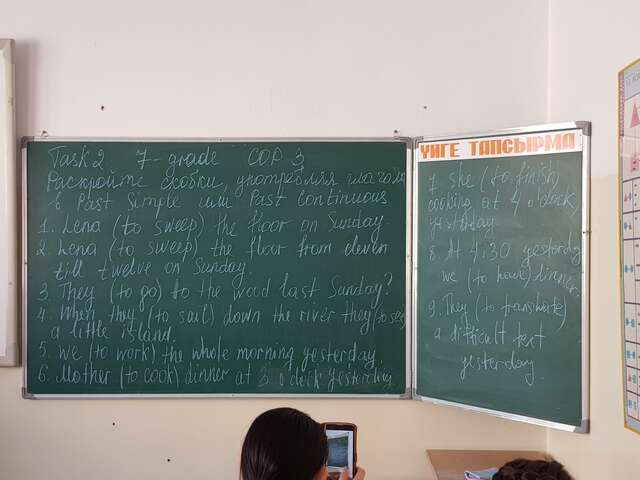 Task 2 7-grade СОР 3
Раскройте скобки, употребляя глаголы
в Past Simple или Past Continuous
1. Lena (to sweep) the floor on Sunday
2. Lena (to sweep) the floor from eleven
till twelve on Sunday
3. They (to go) to the wood last Sunday?
4. When they (to sail) down the river they (to see)
a little island.
5. We (to work) the whole morning yesterday.
6. Mother (to cook) dinner at 3 o'clock yesterday.
ҮЙГЕ ТАПСЫРМА
7. She (to finish)
cooking at 4 o'clock
yesterday
8. At 4:30 yesterday
we (to have) dinner.
9. They (to translate)
a difficult text
yesterday.